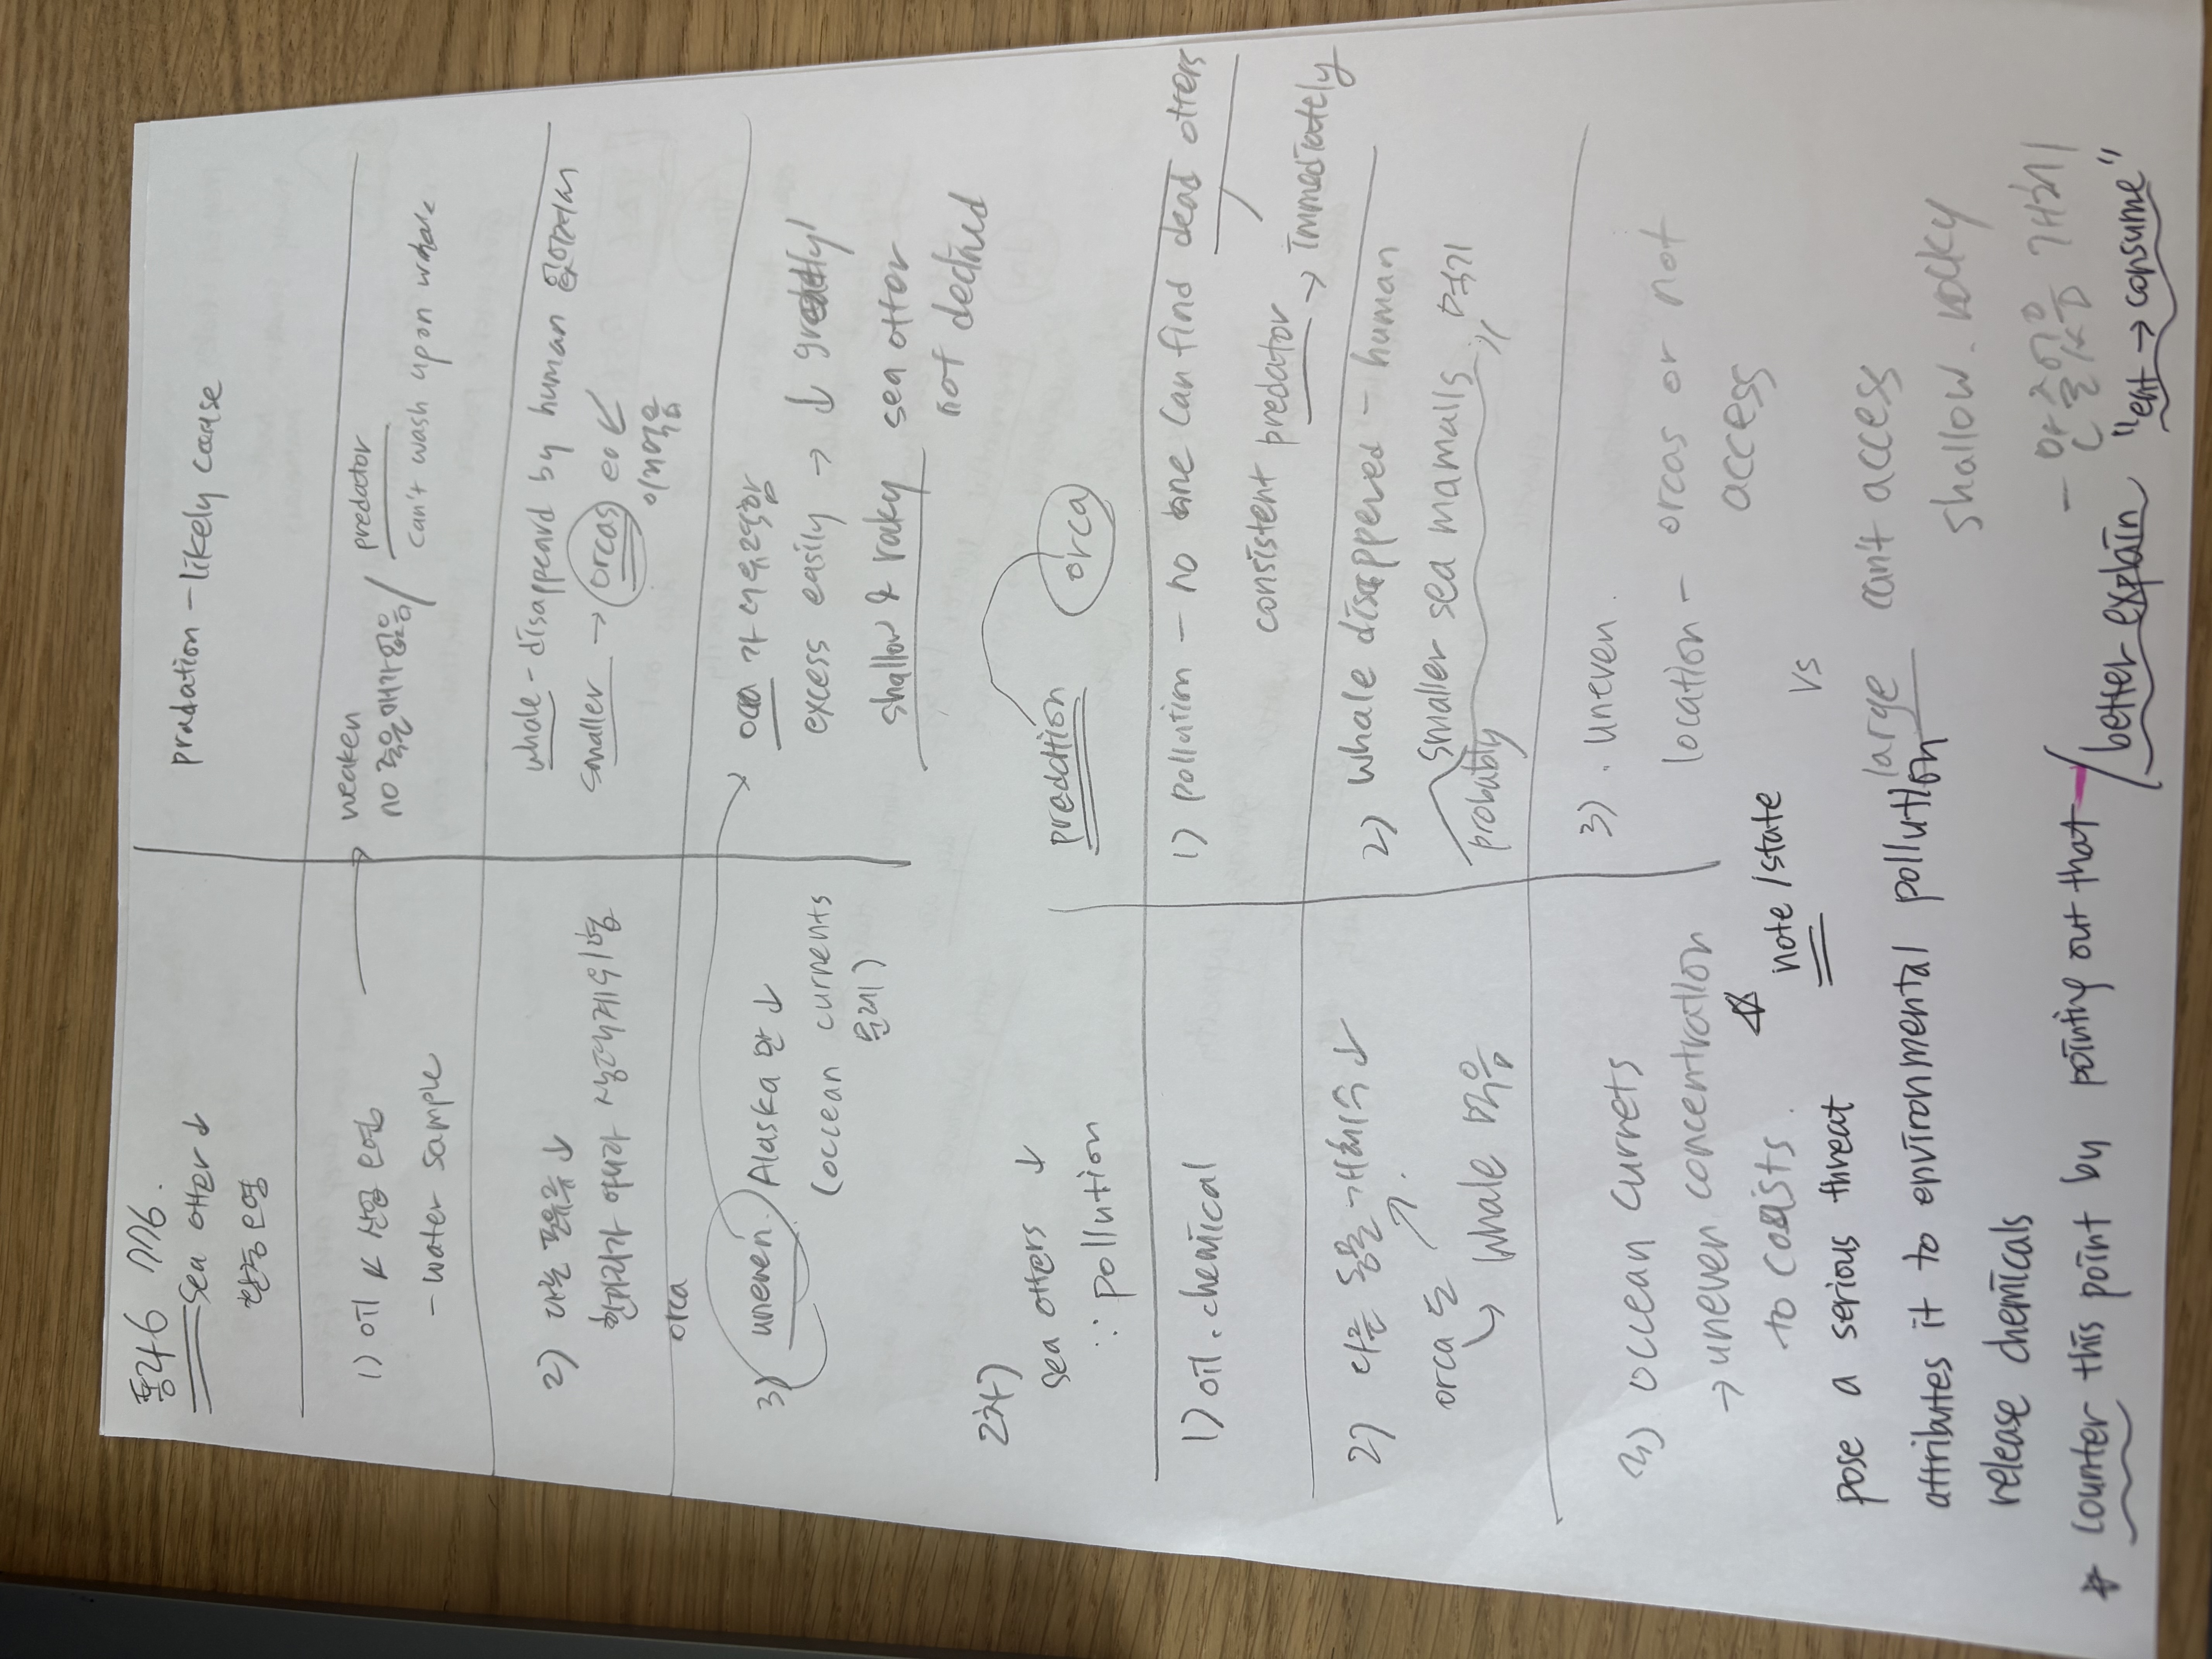 통46 P176.
Sea otter ↓
환경오염
predation - likely cause
1) oil & 산업 오염
- water sample
→ weaken
no 죽은애가없음 / predator
can't wash upon whale
2) 다른 포유류 ↓
한가지가 아니라 생태계위험
orca
whale - disappeard by human 없어져서
smaller → orcas
이제먹음
3) uneven. Alaska 만 ↓
(occean currents
문제)
→ oca 가 더위력함
excess easily → ↓ greatly
shallow & roky sea otter
not declined
2차)
sea otters ↓
∵ pollution
predction orca
1) oil. chemical
1) pollution - no one can find dead otters
consistent predator → immediately
2) 다른 동물 개체수 ↓
orca는
↳ whale 먹음
2) whale disappered - human
smaller sea mamalls 먹기
probably
3) occean currets
→ uneven concentration
to coasts.
3). uneven.
location - orcas or not
access
vs
large can't access
shallow. rocky
☆ note / state
pose a serious threat
attributes it to environmental pollution
release chemicals
* counter this point by pointing out that / better explain
"eat → consume"